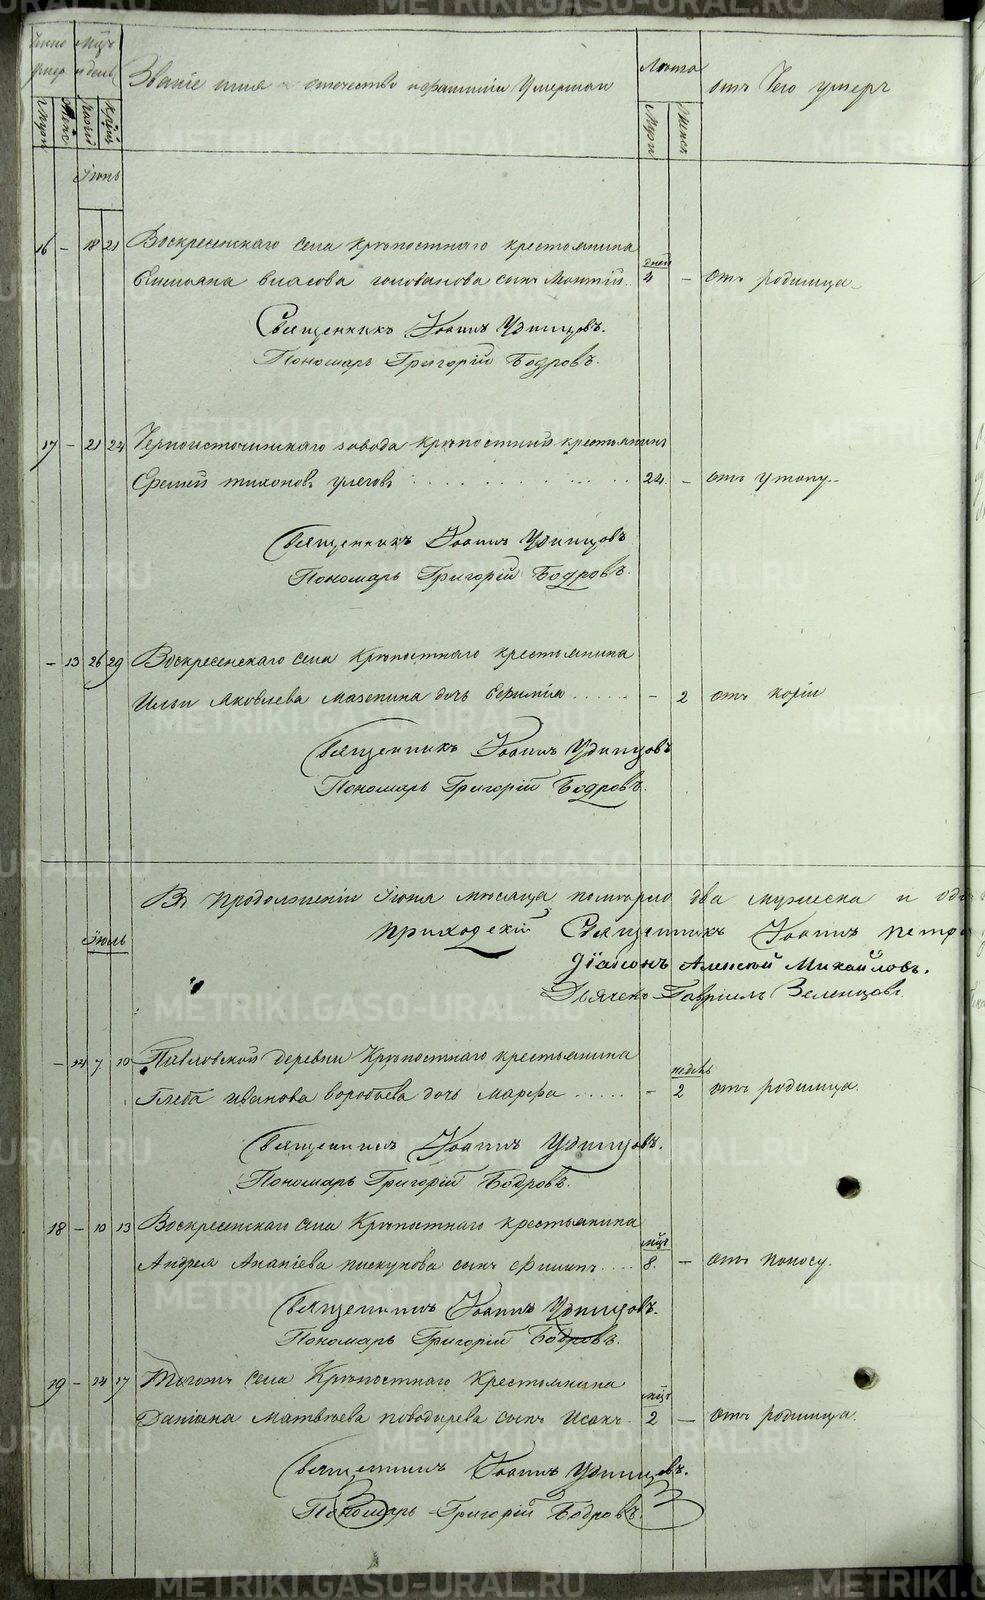 METRIKI.GASO-URAL.RU
Мсцъ
и день
Званіе имя и отечество и фамиліи Умершаго
Лѣта
отъ Чего умеръ
Муж
Женс
Іюнь
16 – 18 21 Воскресенскаго села крѣпостнаго крестьянина
дней
Власова голованова сынъ 2 – отъ родимца
Священникъ Іоаннъ Удинцовъ.
Пономарь Григорій Бодровъ.
17 – 21 24 Черноисточинскаго завода крѣпостный крестьянинъ
тихоновъ 22 – отъ утопу
Священникъ Іоаннъ Удинцовъ
Пономарь Григорій Бодровъ.
– 13 26 29 Воскресенскаго села Крѣпостнаго крестьянина
Ильи Яковлева Мазенина дочь Ефимія – 2 отъ коріи
Священникъ Іоаннъ Удинцовъ
Пономарь Григорій Бодровъ.
Въ продолженіи Іюня мѣсяца померло два мужеска и
Іюль
приходскій Священникъ Іоаннъ
Діаконъ Алексѣй Михайловъ.
Дьячекъ Гавріилъ Зеленцовъ.
– 14 7 10 Павловской деревни Крѣпостнаго крестьянина
недель
Глеба иванова воробьева дочь марфа – 2 отъ родимца.
Священникъ Іоаннъ Удинцовъ.
Пономарь Григорій Бодровъ.
18 – 10 13 Воскресенскаго села Крѣпостнаго крестьянина
мсцъ
Андрея Ананіева пискунова сынъ Филипъ 8. – отъ поносу.
Священникъ Іоаннъ Удинцовъ.
Пономарь Григорій Бодровъ.
19 – 14 17 Тогожъ села Крѣпостнаго Крестьянина
мсцъ
Даніила Матвѣева поводырева сынъ Исакъ. 2 – отъ родимца.
Священникъ Іоаннъ Удинцовъ.
Пономарь Григорій Бодровъ